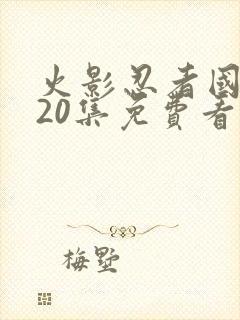 火影忍者國
20集免費看
梅墅